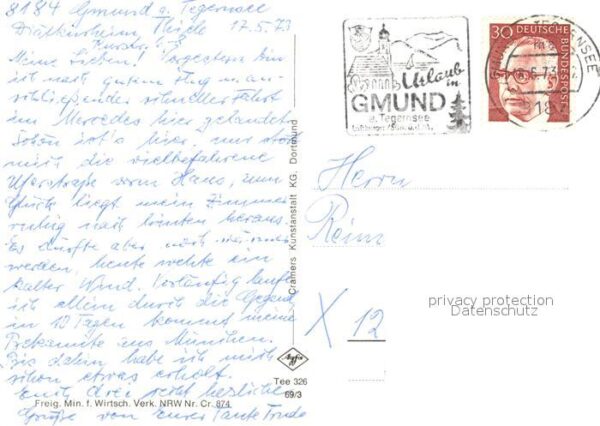 8184 Gmund a. Tegernsee
Diätkurheim Thiele 17.5.73
Kurstr.
Meine Lieben! Vorgestern bin
ich nach gutem Flug m. an-
schließender schneller Fahrt
im Mercedes hier gelandet.
Schön ist's hier, nur stört
mich die vielbefahrene
Uferstraße vorm Haus, zum
Glück liegt mein Zimmer
ruhig nach hinten heraus.
Es dürfte aber noch wärmer
werden, heute wehte ein
kalter Wind. Vorläufig laufe
ich allein durch die Gegend
in 10 Tagen kommt meine
Bekannte aus München.
Bis dahin habe ich mich
schon etwas erholt.
Euch drei recht herzliche
Grüße von Eurer Tante Trude
Freig. Min. f. Wirtsch. Verk. NRW Nr. Cr. 874
Cramers Kunstanstalt KG. Dortmund
Agfa
Tee 326
69/3
Urlaub
in
GMUND
a. Tegernsee
30
DEUTSCHE BUNDESPOST
TEGERNSEE
Herrn
Reim
X 12
privacy protection
Datenschutz